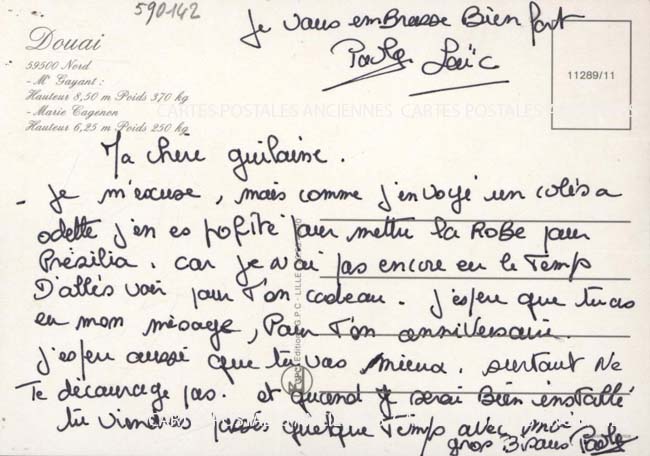 590142
Je vous embrasse Bien fort
Paule Loïc
Douai
59500 Nord
- Mr Gayant :
Hauteur 8,50 m Poids 370 kg
- Marie Cagenon
Hauteur 6,25 m Poids 250 kg
11289/11
CARTES POSTALES ANCIENNES CARTES POSTALES
Ma chere guilaine.
- Je m'excuse, mais comme j'envoyé un colés a
odette j'en es pofité pour mettre la Robe pour
Présilia. car je n'ai pas encore eu le Temps
D'allés voir pour T'on cadeau. J'espeu que tu as
eu mon mésage, Pour T'on anniversaire
j'espeu aussé que tu vas mieux. surtout Ne
Te décourage pas. et quand je serai Bien installé
tu viendras passés quelque Temps avec moi
gros Bisous Paule